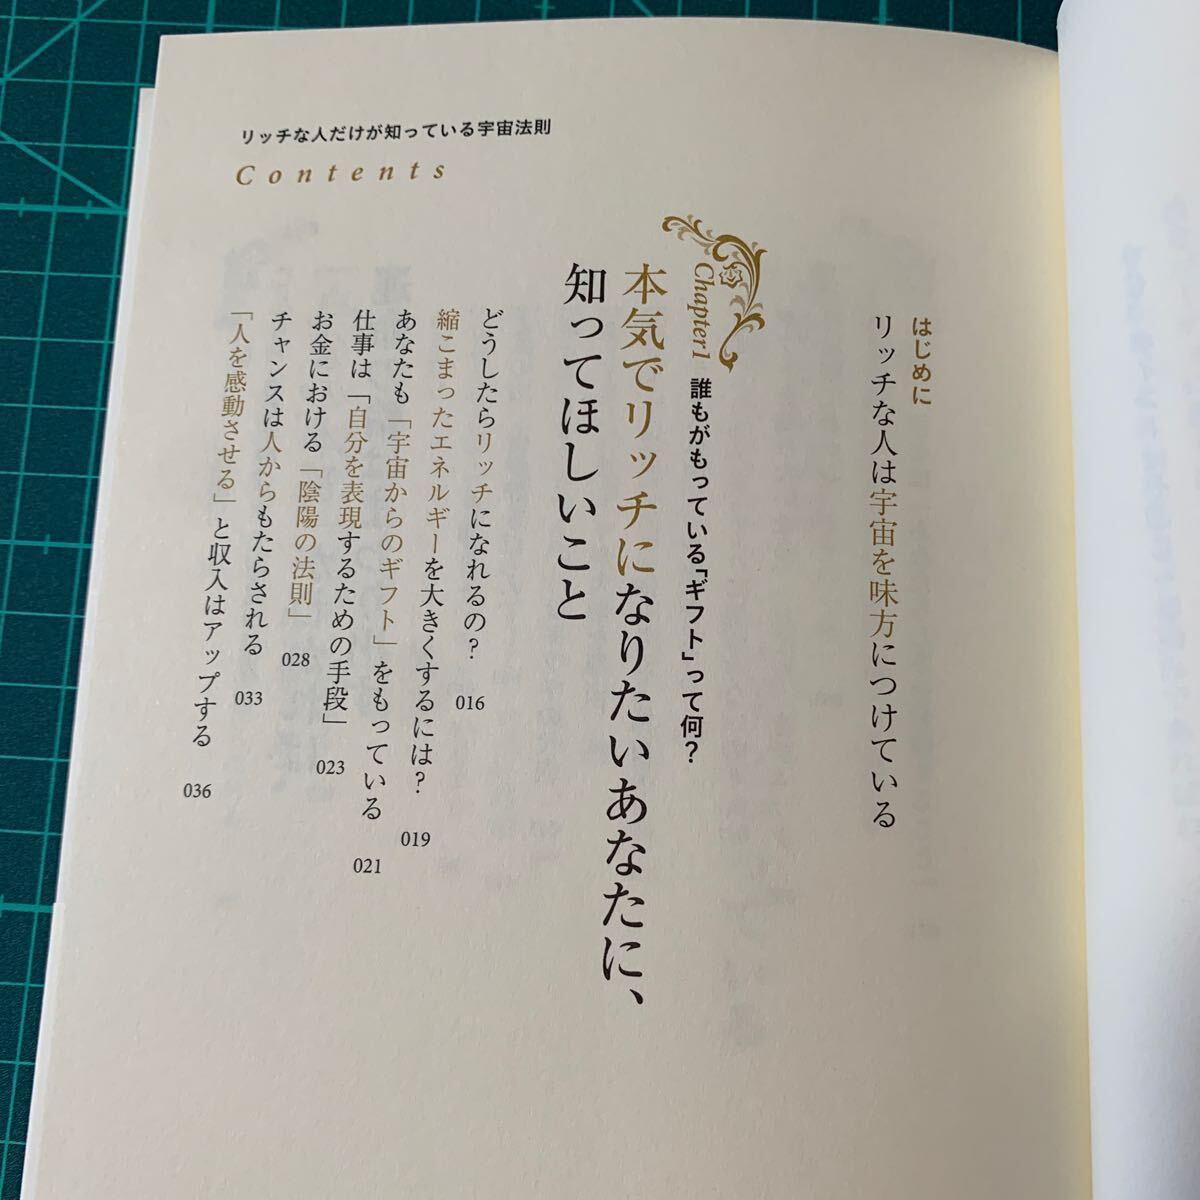 リッチな人だけが知っている宇宙法則
Contents
はじめに
リッチな人は宇宙を味方につけている
Chapter1
誰もがもっている「ギフト」って何？
本気でリッチになりたいあなたに、
知ってほしいこと
どうしたらリッチになれるの？ 016
縮こまったエネルギーを大きくするには？ 019
あなたも「宇宙からのギフト」をもっている 021
仕事は「自分を表現するための手段」 023
お金における「陰陽の法則」 028
チャンスは人からもたらされる 033
「人を感動させる」と収入はアップする 036